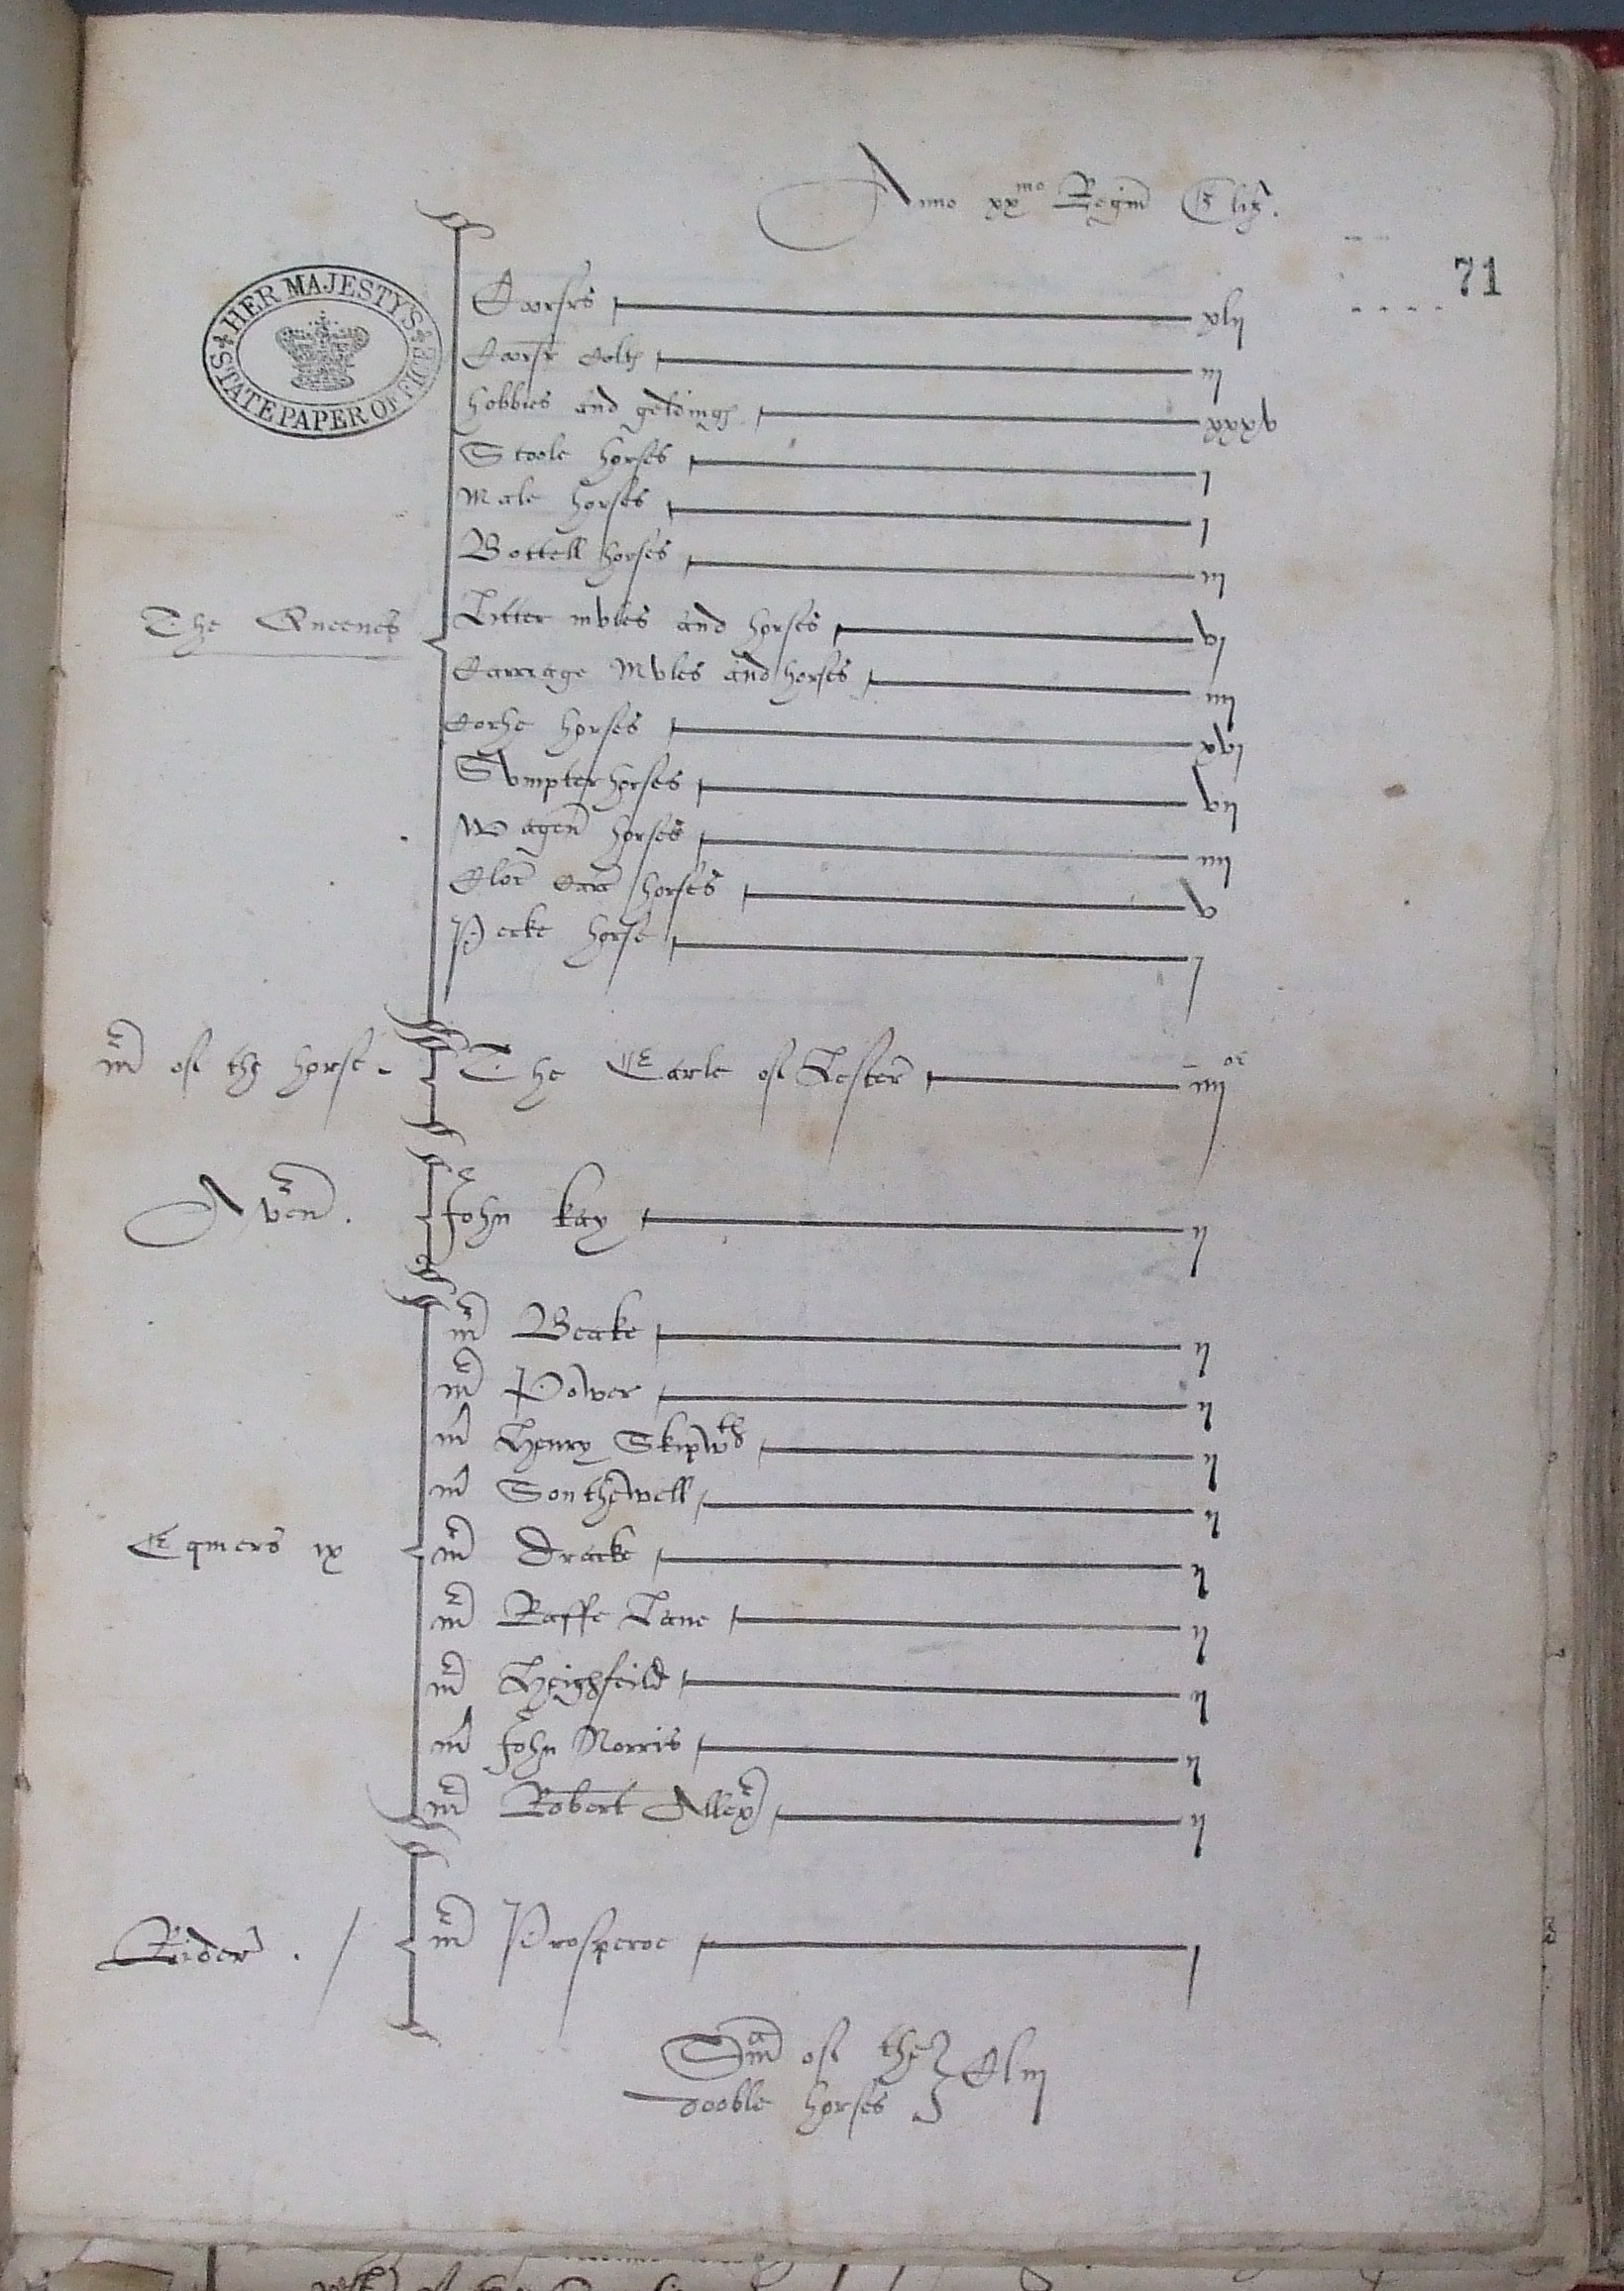 Anno xx^mo Regin Eliz.
71
HER MAJESTY'S STATE PAPER OFFICE
Coorsrs xlij
Coorsr Colts iij
hobbies and geldings xxxv
Stoole horses j
Male horses j
Bottell horses iij
The Queenes
Litter mvles and horses vj
Carriage Mvles and horses iiij
Coche horses xvj
Svmpter horses vij
Wagen horses iiij
Clot Care horses v
Packe horse j
mr of the horse - The Earle of Lester iiij^or
Aven. John Kay ij
mr Beake ij
mr Power ij
mr Henry Skipwth ij
mr Southewell ij
Eqiuers ix mr Dracke ij
mr Raffe Lane ij
mr Heighfeild ij
mr John Morris ij
mr Robert Allex ij
Rider. / mr Prosperoe j
Sma of the
dooble horses } Cliij